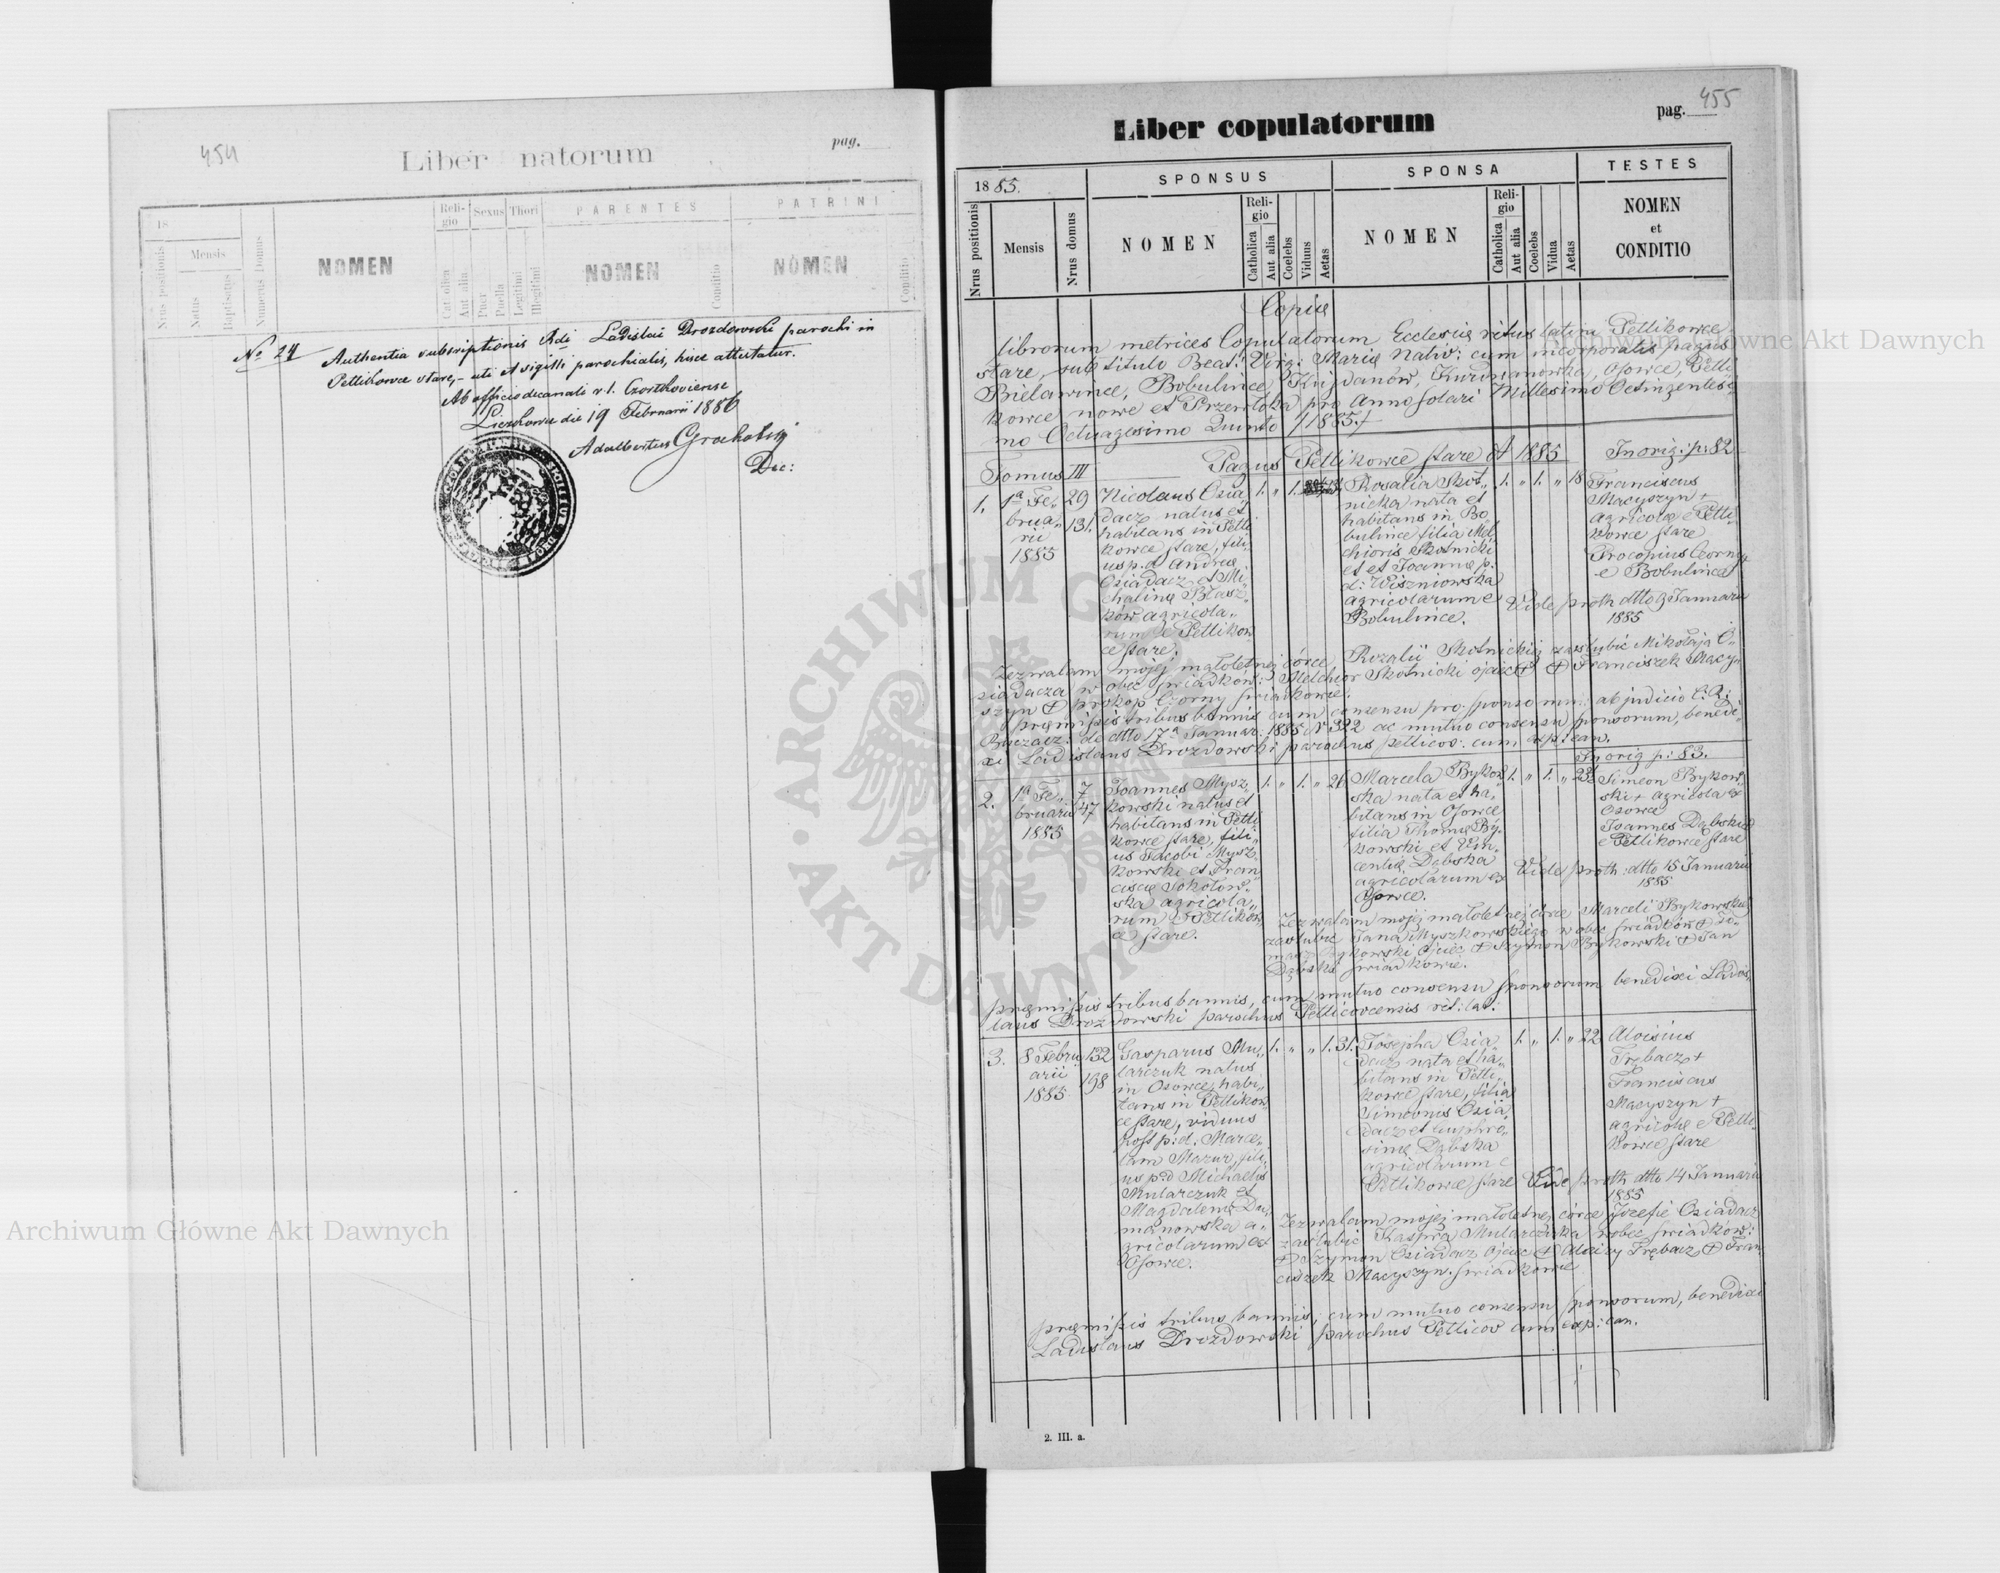 454
Liber natorum
pag.
18
Nrus positionis
Mensis
Natus
Baptisatus
Numerus Domus
NOMEN
Reli-
gio
Catholica
Aut alia
Sexus
Puer
Puella
Thori
Legitimi
Illegitimi
PARENTES
NOMEN
Conditio
PATRINI
NOMEN
Conditio
No 24
Authentia subscriptionis Rdi Ladislai Drozdowski parochi in
Petlikowce stare, – uti et sigilli parochialis, hisce attestatur.
Ab officio decanali r. l. Czortkoviense
die 19 Februarii 1886
Adalbertus Grocholski
Dec:
455
Liber copulatorum
pag.
1885.
SPONSUS
SPONSA
TESTES
Nrus positionis
Mensis
Nrus domus
NOMEN
Reli-
gio
Catholica
Aut alia
Coelebs
Viduus
Aetas
NOMEN
Reli-
gio
Catholica
Aut alia
Coelebs
Vidua
Aetas
NOMEN
et
CONDITIO
Copia
librorum metrices Copulatorum Ecclesiæ ritus latini Petlikowce
stare, sub titulo Beat: Virg: Mariæ Nativ: cum incorporatis pagis
Bielawince, Bobulince, Kujdanów, Kurdwanówka, Osowce, Petli-
kowce nowe et Przewłoka pro Anno solari Millesimo Octingentesi-
mo Octuagesimo Quinto /1885./
Tomus III
Pagus Petlikowce stare A 1885
In orig: p: 82
1.
1ª Fe-
brua-
rii
1885
29
131.
Nicolaus Osia-
dacz natus et
habitans in Petli-
kowce stare, fili-
us p. d. Andreæ
Osiadacz et Mi-
chalinæ Błasz-
ków agricola-
rum e Petlikow-
ce stare.
1. „ 1.
Rosalia Skot-
nicka nata et
habitans in Bo-
bulince filia Mel-
chioris Skotnicki
et Joannæ p.
d: Wiszniowska
agricolarum e
Bobulince.
1. „ 1. „ 18
Franciscus
Macyszyn +
agricola e Petli-
kowce stare
Procopius Czorny +
e Bobulince
Vide proth dtto 9 Januarii
1885
Zezwalam mojej małoletniej córce Rozalii Skotnickiej zaślubić Mikołaja O-
siadacza w obec świadków: Melchior Skotnicki ojciec + Franciszek Macy-
szyn + Prokop Czorny świadkowie.
præmissis tribus bannis cum consensu pro sponso min: ab judicio C. R:
Buczacz: de dtto 17ª Januar: 1885 N 322 ac mutuo consensu sponsorum, benedi-
xi Ladislaus Drozdowski parochus petlicov: cum exp: can.
In orig p: 83.
2.
1ª Fe-
bruarii
1885
7
47
Joannes Mysz-
kowski natus et
habitans in Petli-
kowce stare, fili-
us Jacobi Mysz-
kowski et Fran-
ciscæ Sokołow-
ska agricola-
rum e Petlikow-
ce stare.
1. „ 1. „ 26
Marcela Bykow-
ska nata et ha-
bitans in Osowce
filia Thomæ By-
kowski et Vin-
centiæ Dąbska
agricolarum ex
Osowce.
1. „ 1. „ 23
Simeon Bykow-
ski + agricola ex
Osowce
Joannes Dąbski +
e Petlikowce stare
Vide proth: dtto 15 Januarii
1885
Zezwalam mojej małoletniej córce Marceli Bykowskiej
zaślubić Jana Myszkowskiego w obec świadków + To-
masz Bykowski Ojciec + Szymon Bykowski + Jan
Dąbski świadkowie.
præmissis tribus bannis, cum mutuo consensu sponsorum benedixi Ladis-
laus Drozdowski parochus Petlicovcensis rit: lat:
3.
8 Febru-
arii
1885
132
198
Gasparus Mu-
larczuk natus
in Osowce, habi-
tans in Petlikow-
ce stare, viduus
post p: d. Marce-
lam Mazur, fili-
us p d Michaelis
Mularczuk et
Magdalenæ Du-
manowska a-
gricolarum ex
Osowce.
1. „ „ 1. 31.
Josepha Osia-
dacz nata et ha-
bitans in Petli-
kowce stare, filia
Simeonis Osia-
dacz et Euphro-
sinæ Dąbska
agricolarum e
Petlikowce stare
1. „ 1. „ 22
Aloisius
Trębacz +
Franciscus
Macyszyn +
agricolæ e Petli-
kowce stare
Vide proth dtto 14 Januarii
1885
Zezwalam mojej małoletniej córce Józefie Osiadacz
zaślubić Kaspra Mularczuka wobec świadków:
+ Szymon Osiadacz ojciec + Aloizy Trębacz + Fran-
ciszek Macyszyn świadkowie
præmissis tribus bannis, cum mutuo consensu sponsorum, benedixi
Ladislaus Drozdowski parochus Petlicov cum exp: can.
2. III. a.
ARCHIWUM GŁÓWNE AKT DAWNYCH
Archiwum Główne Akt Dawnych
Archiwum Główne Akt Dawnych